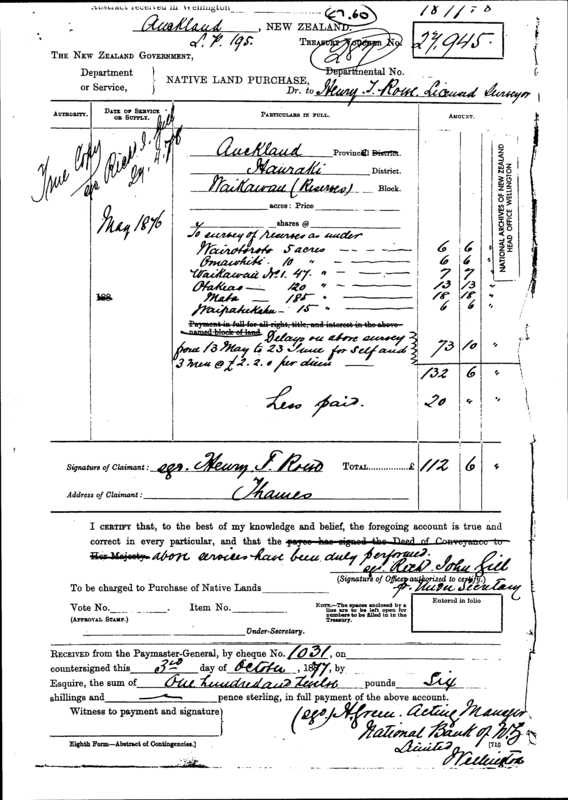 Abstract received in Wellington
Auckland, NEW ZEALAND.
£7.60
L.P. 195.
TREASURY Voucher No.
287
27,945.
THE NEW ZEALAND GOVERNMENT,
Department or Service, } NATIVE LAND PURCHASE,
Departmental No.
Dr. to Henry T. Rowe Licensed Surveyor
AUTHORITY. DATE OF SERVICE OR SUPPLY. PARTICULARS IN FULL. AMOUNT.
True Copy
Auckland Provincial District.
Hauraki District.
Waikawau (Reserves) Block.
acres: Price
shares @
May 1876
To survey of reserves as under
Wairotoroto 5 acres 6 6 "
Omawhiti 10 " 6 6 "
Waikawau No 1. 47. " 7 7 "
Otakeao 120 " 13 13 "
188. Mata 185 " 18 18 "
Waipatukahu 15 " 6 6 "
Payment in full for all right, title, and interest in the above-named block of land.
Delays on above survey
from 13 May to 23 June for self and
3 men @ £2.2.0 per diem 73 10 "
132 6 "
Less paid. 20 " "
Signature of Claimant: sgd. Henry T. Rowe TOTAL £ 112 6 "
Address of Claimant: Thames
NATIONAL ARCHIVES OF NEW ZEALAND
HEAD OFFICE WELLINGTON
I CERTIFY that, to the best of my knowledge and belief, the foregoing account is true and
correct in every particular, and that the payee has signed the Deed of Conveyance to
Her Majesty. above services have been duly performed.
sgd. Richd. John Gill
(Signature of Officer authorized to certify.)
pr. Under Secretary
To be charged to Purchase of Native Lands
Vote No. Item No.
(APPROVAL STAMP.)
NOTE.—The spaces enclosed by a line are to be left open for numbers to be filled in in the Treasury.
Entered in folio
Under-Secretary.
RECEIVED from the Paymaster-General, by cheque No. 1031, on
countersigned this 3rd day of October, 1877, by
Esquire, the sum of One hundred and twelve pounds Six
shillings and pence sterling, in full payment of the above account.
Witness to payment and signature
(sgd) H Green. Acting Manager
National Bank of N.Z.
Limited
Wellington
Eighth Form—Abstract of Contingencies.]
[715